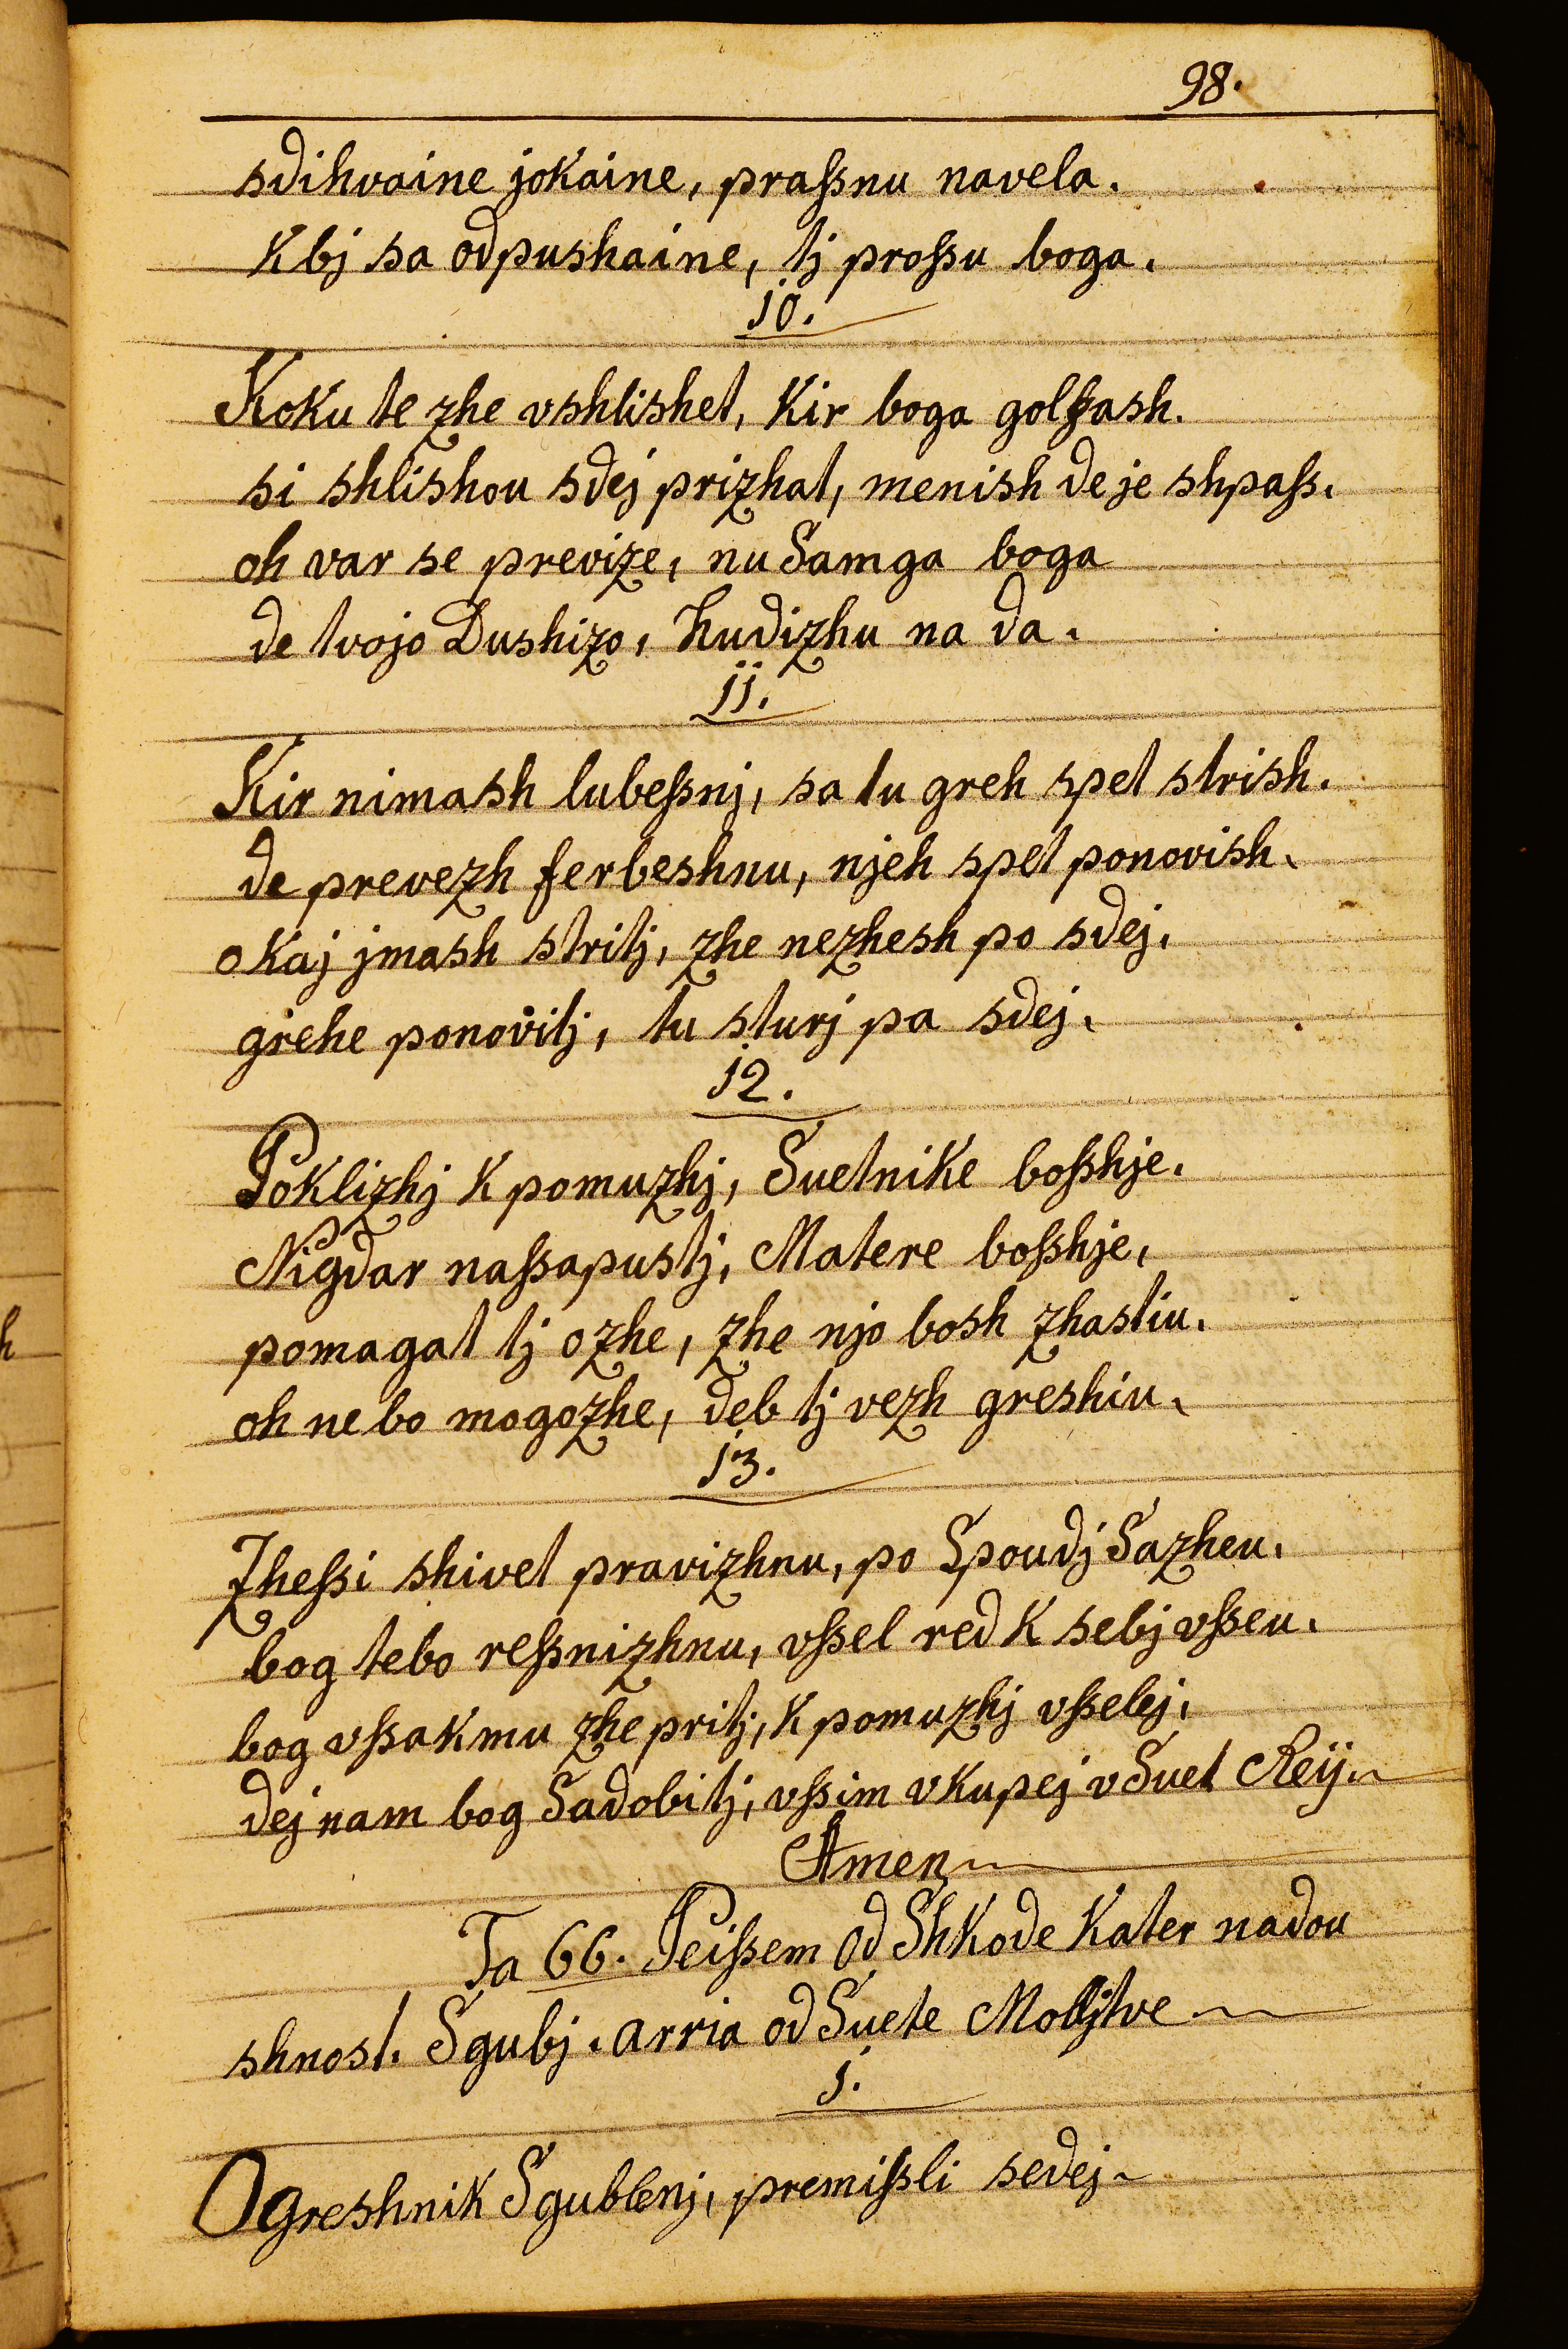 98.
sdihvaine jokaine, praſsnu navela.
K bj sa odpushaine, tj proſsu boga.
10.
Koku te zhe vshlishet, Kir boga golfash.
si shlishou sdej prizhat, menish de je shpaſs.
oh var se previze, nu Samga boga
de tvojo Dushizo, hudizhu na da.
11.
Kir nimash lubeſsnj, sa tu greh spet strish.
de prevezh ferbeshnu, njeh spet ponovish.
o Kaj jmash stritj, zhe nezhesh po sdej,
grehe ponovitj, tu sturj pa sdej.
12.
Poklizhj K pomuzhj, Suetnike boſshje.
Nigdar naſsapustj, Matere boſshje,
pomagat tj ozhe, zhe njo bosh zhastiu.
oh ne bo mogozhe, deb tj vezh greshiu.
13.
Zheſsi shivet pravizhnu, po Spoudj Sazheu.
bog tebo reſsnizhnu, vſsel red K sebj vſseu.
bog vſsakmu zhe pritj, K pomuzhj vſselej,
dej nam bog Sadobitj, vſsim vkupej v Suet Reÿ.
Amen
Ta 66. Peiſsem Od Shkode Kater nadou
shnost. Sgubj. arria od Suete Moljtve
1.
O greshnik Sgublenj, premiſsli sedej